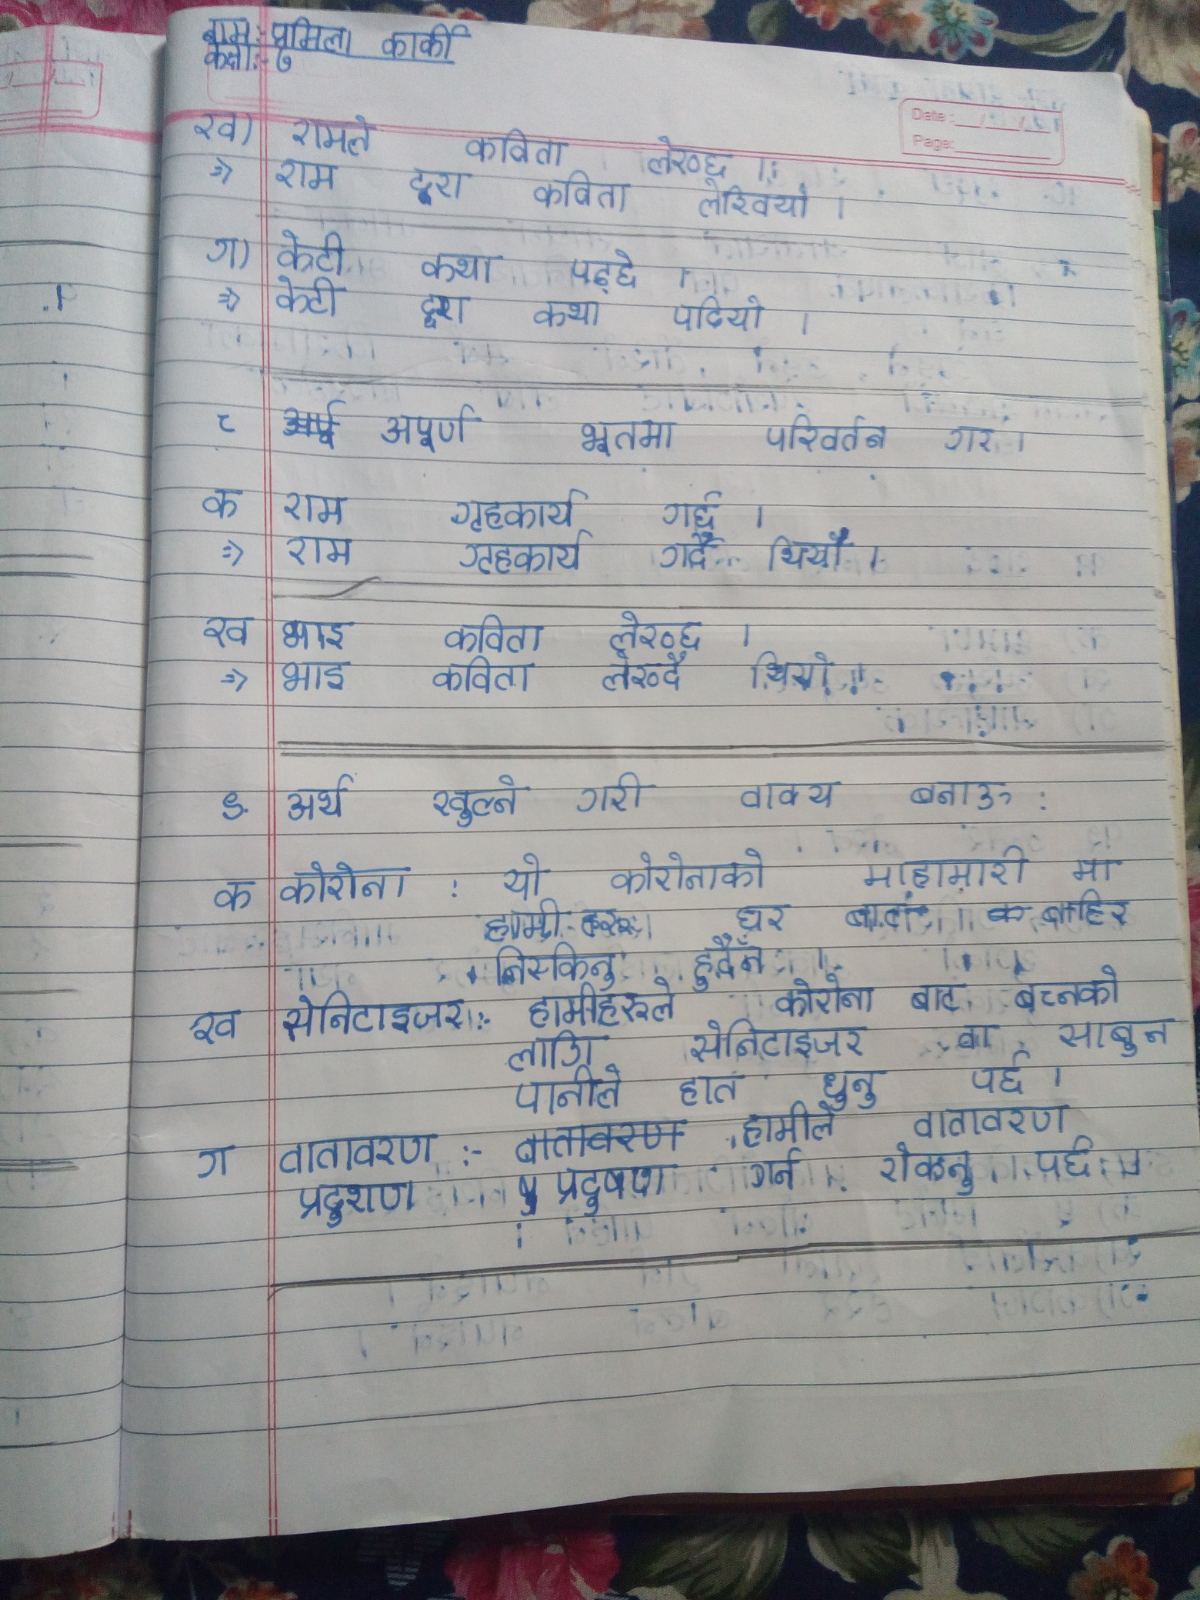 नाम:- प्रमिला कार्की
कक्षा:- ७
Date:
Page:
ख) रामले कविता लेख्छ ।
⇒ राम द्वारा कविता लेखियो ।
ग) केटी कथा पढ्छे ।
⇒ केटी द्वारा कथा पढियो ।
८ अपूर्ण भूतमा परिवर्तन गर ।
क राम गृहकार्य गर्छ ।
⇒ राम गृहकार्य गर्दै थियो ।
ख भाइ कविता लेख्छ ।
⇒ भाइ कविता लेख्दै थियो ।
९. अर्थ खुल्ने गरी वाक्य बनाऊ :
क कोरोना : यो कोरोनाको माहामारी मा
हामी हरु घर बाट बाहिर
निस्किनु हुदैँन ।
ख सेनिटाइजर :- हामीहरुले कोरोना बाट बच्नको
लागि सेनिटाइजर वा साबुन
पानीले हात धुनु पर्छ ।
ग वातावरण :- हामीले वातावरण
प्रदुशण प्रदुषण गर्न रोक्नु पर्छ ।